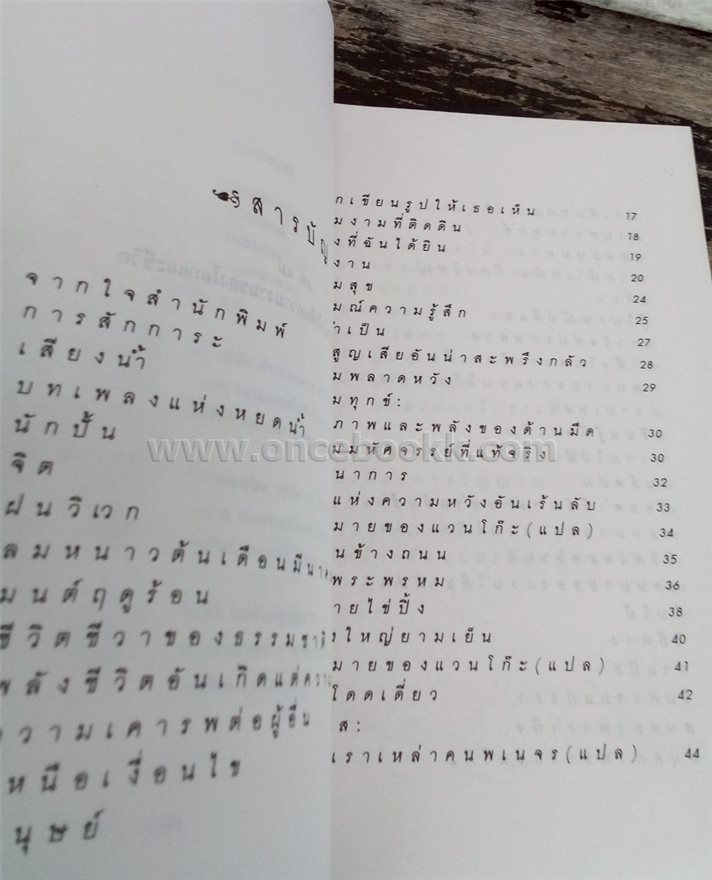 สารบัญ
จากใจสำนักพิมพ์
การสักการะ
เสียงน้ำ
บทเพลงแห่งหยดน้ำ
นักปั้น
จิต
ฝนวิเวก
ลมหนาวต้นเดือนมีนาค
มนต์ฤดูร้อน
ชีวิตชีวาของธรรมชาติ
พลังชีวิตอันเกิดแต่ความ
ความเคารพต่อผู้อื่น
หนือเงื่อนไข
นุษย์
กเขียนรูปให้เธอเห็น 17
มงามที่ติดดิน 18
งที่ฉันได้ยิน 19
งาน 20
มสุข 24
มณ์ความรู้สึก 25
าเป็น 27
สูญเสียอันน่าสะพรึงกลัว 28
มพลาดหวัง 29
มทุกข์:
ภาพและพลังของด้านมืด 30
มมหัศจรรย์ที่แท้จริง 30
นาการ 32
แห่งความหวังอันเร้นลับ 33
มายของแวนโก๊ะ(แปล) 34
นข้างถนน 35
พระพรหม 36
ายไข่ปิ้ง 38
งใหญ่ยามเย็น 40
มายของแวนโก๊ะ(แปล) 41
โดดเดี่ยว 42
ส:
เราเหล่าคนพเนจร(แปล) 44
www.oncebookk.com